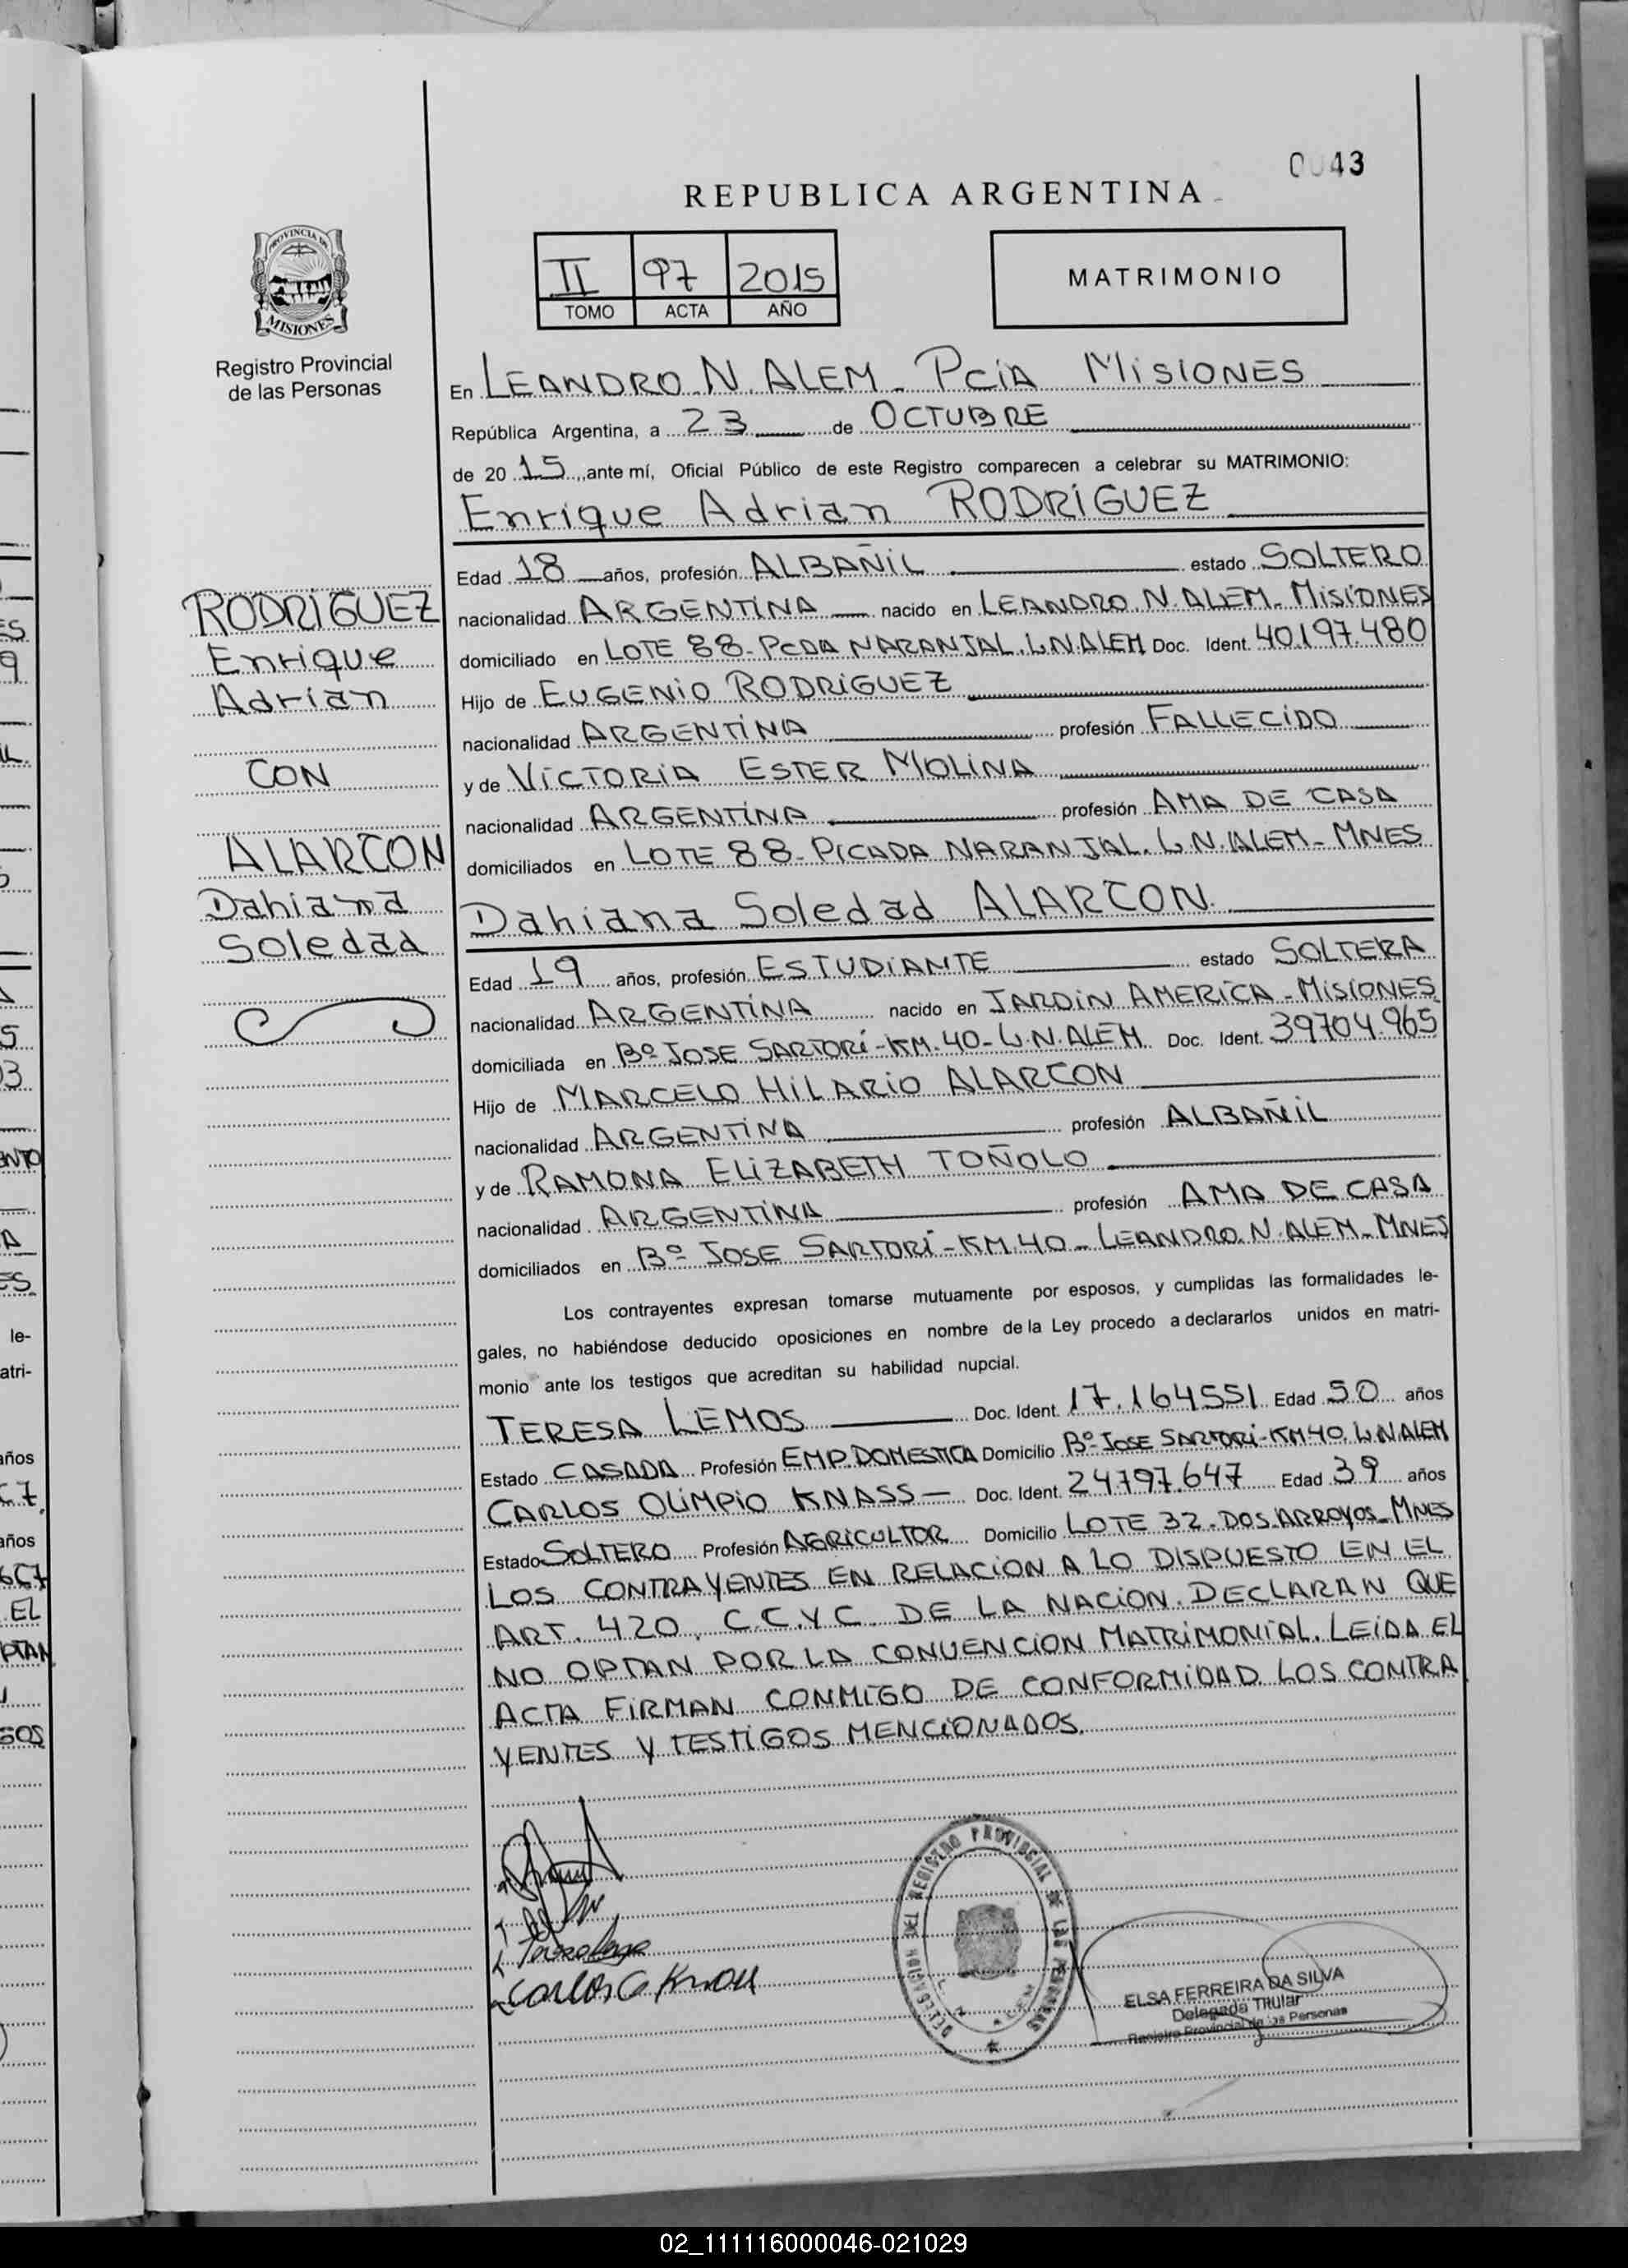 0043
REPUBLICA ARGENTINA
II 97 2015
TOMO ACTA AÑO
MATRIMONIO
PROVINCIA DE
MISIONES
Registro Provincial
de las Personas
En LEANDRO. N. ALEM - PCIA MISIONES
República Argentina, a 23 de OCTUBRE
de 20 15 ante mí, Oficial Público de este Registro comparecen a celebrar su MATRIMONIO:
Enrique Adrian RODRÍGUEZ
Edad 18 años, profesión ALBAÑIL estado SOLTERO
nacionalidad ARGENTINA nacido en LEANDRO. N. ALEM - MISIONES
domiciliado en LOTE 88 - PCDA NARANJAL. L.N.ALEM Doc. Ident. 40.197.480
Hijo de EUGENIO RODRIGUEZ
nacionalidad ARGENTINA profesión FALLECIDO
y de VICTORIA ESTER MOLINA
nacionalidad ARGENTINA profesión AMA DE CASA
domiciliados en LOTE 88 - PICADA NARANJAL. L.N.ALEM - MNES
RODRÍGUEZ
Enrique
Adrian
CON
ALARCON
Dahiana
Soledad
Dahiana Soledad ALARCON.
Edad 19 años, profesión ESTUDIANTE estado SOLTERA
nacionalidad ARGENTINA nacido en JARDIN AMERICA - MISIONES
domiciliada en Bº JOSE SARTORI - KM. 40 - L.N. ALEM Doc. Ident. 39704.965
Hijo de MARCELO HILARIO ALARCON
nacionalidad ARGENTINA profesión ALBAÑIL
y de RAMONA ELIZABETH TOÑOLO
nacionalidad ARGENTINA profesión AMA DE CASA
domiciliados en Bº JOSE SARTORI - KM. 40 - LEANDRO. N. ALEM - MNES
Los contrayentes expresan tomarse mutuamente por esposos, y cumplidas las formalidades le-
gales, no habiéndose deducido oposiciones en nombre de la Ley procedo a declararlos unidos en matri-
monio ante los testigos que acreditan su habilidad nupcial.
TERESA LEMOS Doc. Ident. 17.164551 Edad 50 años
Estado CASADA Profesión EMP. DOMESTICA Domicilio Bº JOSE SARTORI - KM 40. L.N.ALEM
CARLOS OLIMPIO KNASS - Doc. Ident. 24797.647 Edad 39 años
Estado SOLTERO Profesión AGRICULTOR Domicilio LOTE 32 - DOS ARROYOS - MNES
LOS CONTRAYENTES EN RELACION A LO DISPUESTO EN EL
ART. 420, C.C.Y.C. DE LA NACION. DECLARAN QUE
NO OPTAN POR LA CONVENCION MATRIMONIAL. LEIDA EL
ACTA FIRMAN CONMIGO DE CONFORMIDAD LOS CONTRA
YENTES Y TESTIGOS MENCIONADOS.
Carlos O Knass
DELEGACION DEL REGISTRO PROVINCIAL DE LAS PERSONAS
L. N. ALEM
ELSA FERREIRA DA SILVA
Delegada Titular
Registro Provincial de las Personas
02_111116000046-021029